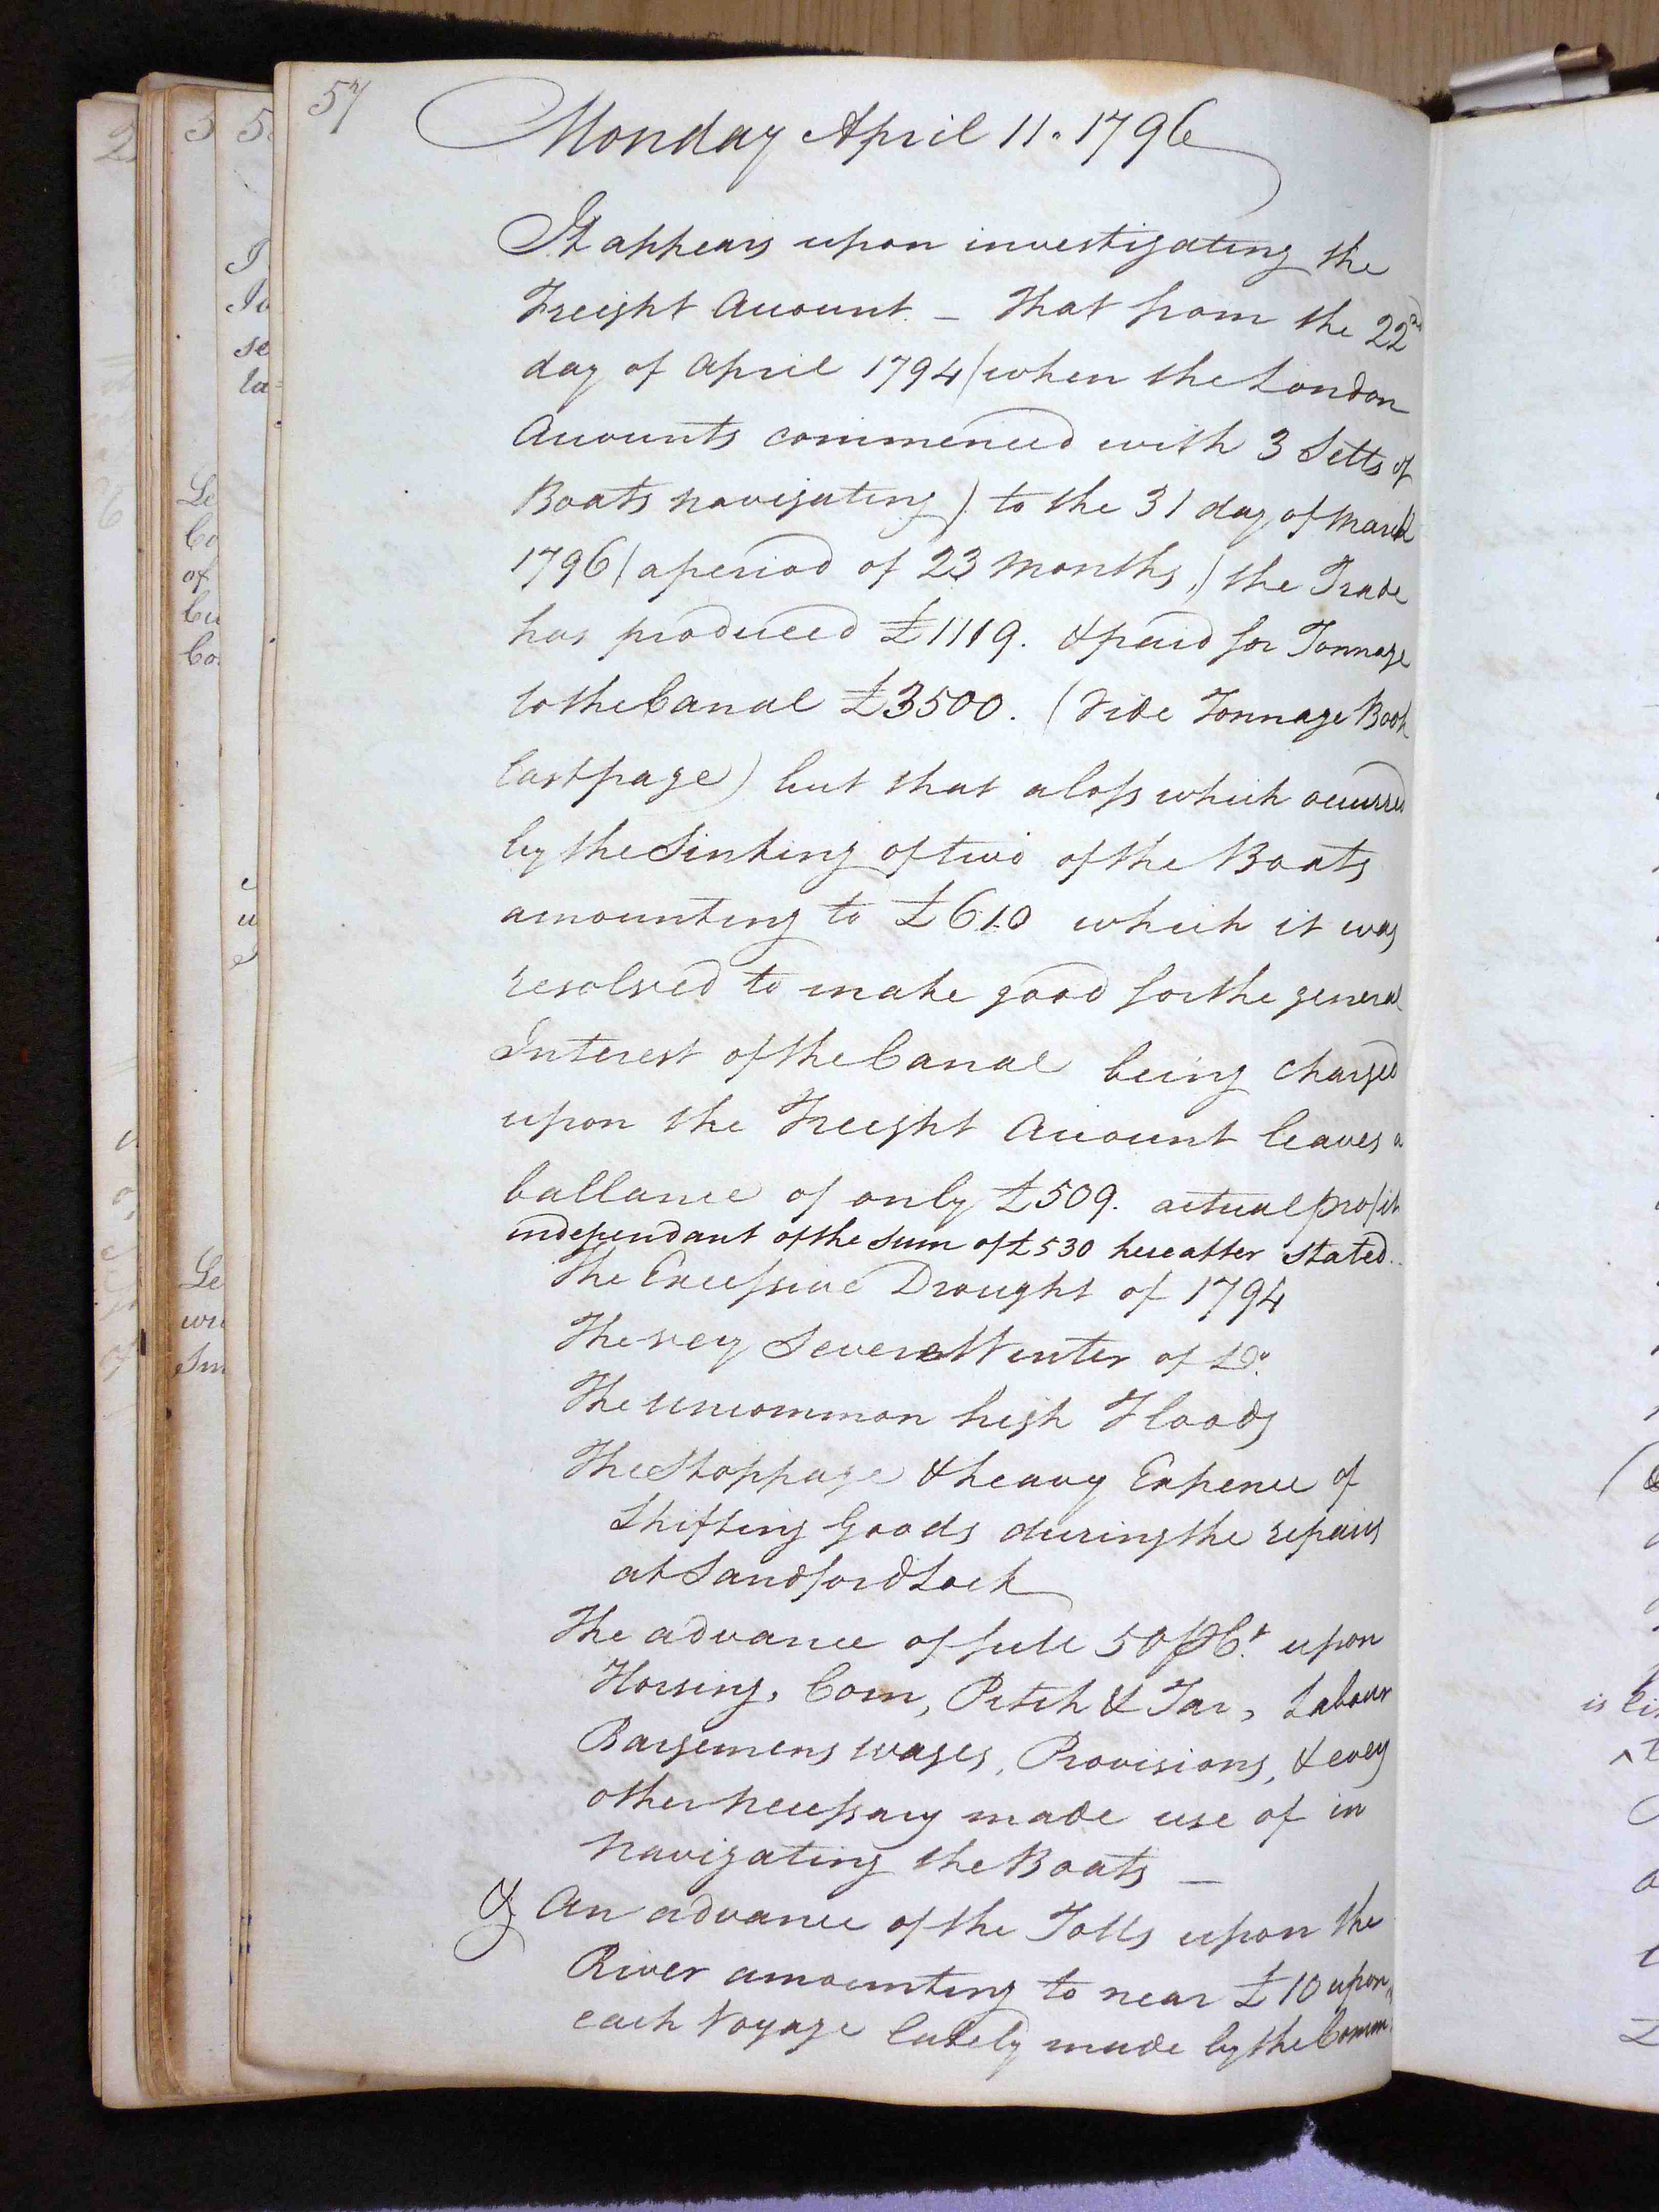 57
Monday April 11. 1796
It appears upon investigating the
Freight Account – that from the 22nd
day of April 1794 (when the London
Accounts commenced with 3 Setts of
Boats navigating) to the 31 day of March
1796 (a period of 23 Months,) the Trade
has produced £1119. & paid for Tonnage
to the Canal £3500. (Vide Tonnage Book
last page) but that a loss which occurred
by the Sinking of two of the Boats
amounting to £610 which it was
resolved to make good for the general
Interest of the Canal being charged
upon the Freight Account leaves a
ballance of only £509. actual profit
independant of the sum of £530 hereafter stated.
The Excessive Drought of 1794
The very Severe Winter of Do.
The uncommon high Floods
The Stoppage & heavy Expence of
Shifting Goods during the repairs
at Sandford Lock
The advance of full 50 ⅌ Ct. upon
Horsing, Corn, Pitch & Tar, Labour
Bargemens wages, Provisions, & every
other necessary made use of in
Navigating the Boats –
& An advance of the Tolls upon the
River amounting to near £10 upon
each Voyage lately made by the Comm